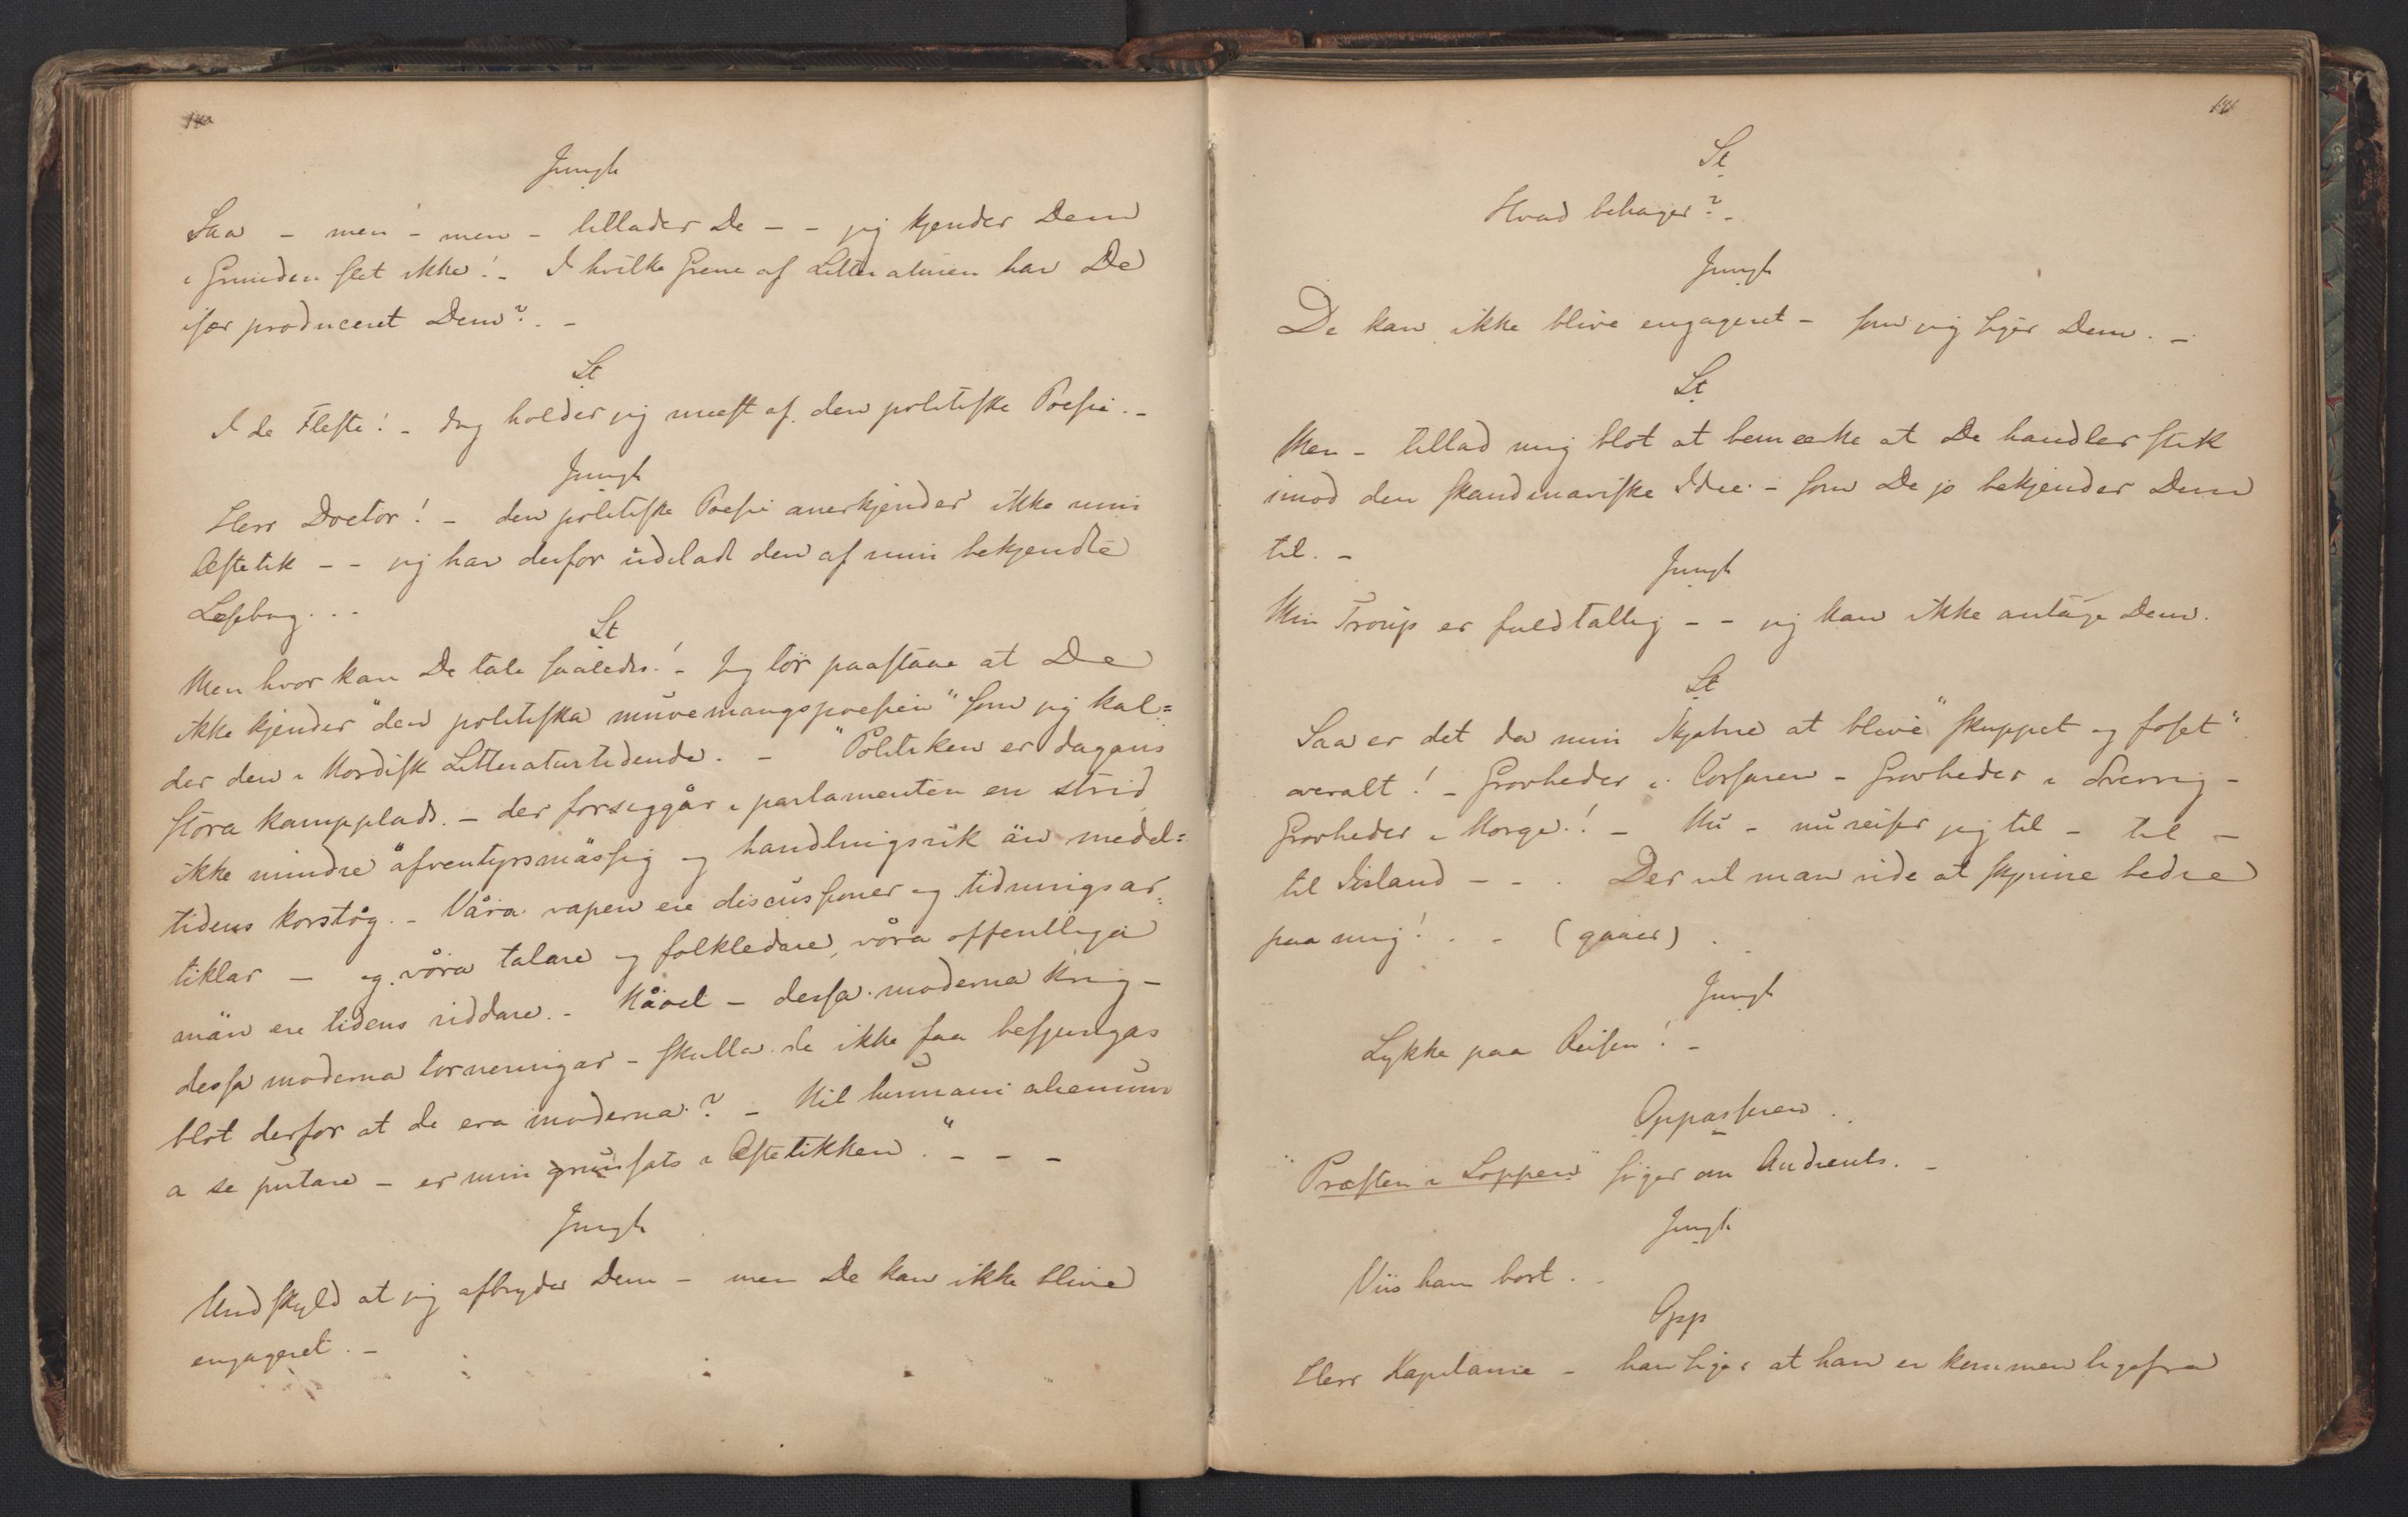 Jungh
Saa – men – men – tillader De – – jeg kjender Dem
i Grunden slet ikke! – I hvilke Grene af Litteraturen har De
især produceret Dem? . –
St
I de Fleste! – dog holder jeg meest af den politiske Poesie. –
Jungh
Herr Doctor! – den politiske Poesie anerkjender ikke min
Æstetik – – jeg har derfor udeladt den af min bekjendte
Læsebog. . –
St
Men hvor kan De tale saaledes! – Jeg tør paastaae at De
ikke kjender "den politiska nuvemangspoesien" som jeg kal=
der den i Nordisk Litteraturtidende. – "Politiken er dagans
stora kampplads. – der forseggår i parlamenten en strid
ikke mindre äfventyrsmässig og handlingsrik än medel=
tidens korståg. – Våra vapen ere discussioner og tidningsar=
tiklar – og våra talare og folkledare, våra offentliga
män ere tidens riddare. – Nåvel – dessa moderna krig –
dessa moderna torneringar – skulla de ikke faa besjungas
blot derfor at de era moderna? – Nil humani alienum
a se putare – er min grunsats i Æstetikken." – – –
Jungh
Undskyld at jeg afbryder Dem – men De kan ikke blive
engageret. –
141
St
Hvad behager? –
Jungh
De kan ikke blive engageret – som jeg siger Dem. –
St
Men – tillad mig blot at bemærke at De handler stik
imod den skandinaviske Idee – som De jo bekjender Dem
til. –
Jungh
Min Troup er fuldtallig – – jeg kan ikke antage Dem.
St
Saa er det da min Skjebne at blive "skuppet og foset"
overalt! – Grovheder i Corsaren – Grovheder i Sverrig –
Grovheder i Norge! – Nu – nu reiser jeg til – til –
til Island – – . Der vil man vide at skjønne bedre
paa mig! . – (gaaer) .
Jungh
Lykke paa Reisen! –
Oppasseren .
"Præsten i Loppen" søger om Audients. –
Jungh
Viis ham bort. –
Opp
Herr Kapitaine – han siger at han er kommen ligefra